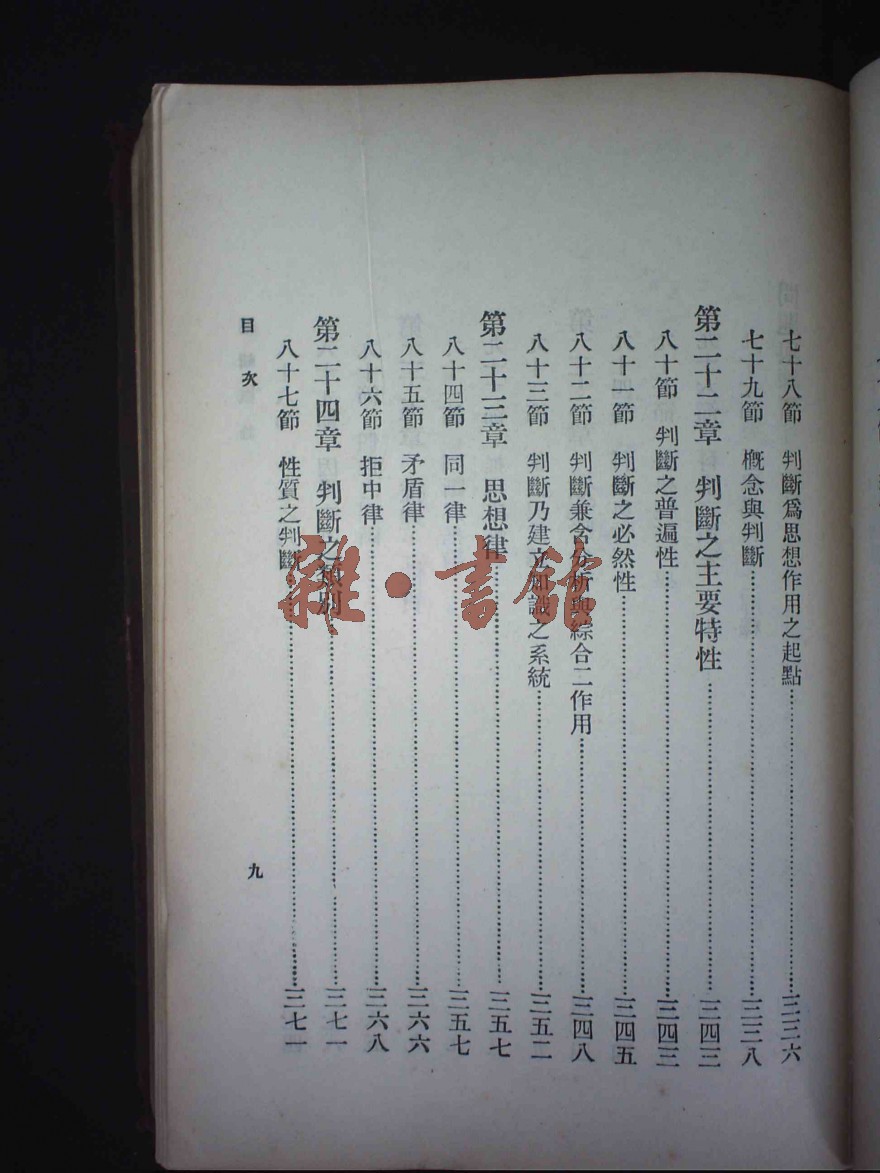 七十八節　判斷爲思想作用之起點……三三六
七十九節　槪念與判斷……三三八
第二十二章　判斷之主要特性……三四三
八十節　判斷之普遍性……三四三
八十一節　判斷之必然性……三四五
八十二節　判斷兼含分析與綜合二作用……三四八
八十三節　判斷乃建立知識之系統……三五二
第二十三章　思想律……三五七
八十四節　同一律……三五七
八十五節　矛盾律……三六六
八十六節　拒中律……三六八
第二十四章　判斷之類別……三七一
八十七節　性質之判斷……三七一
目次
九
雜·書館